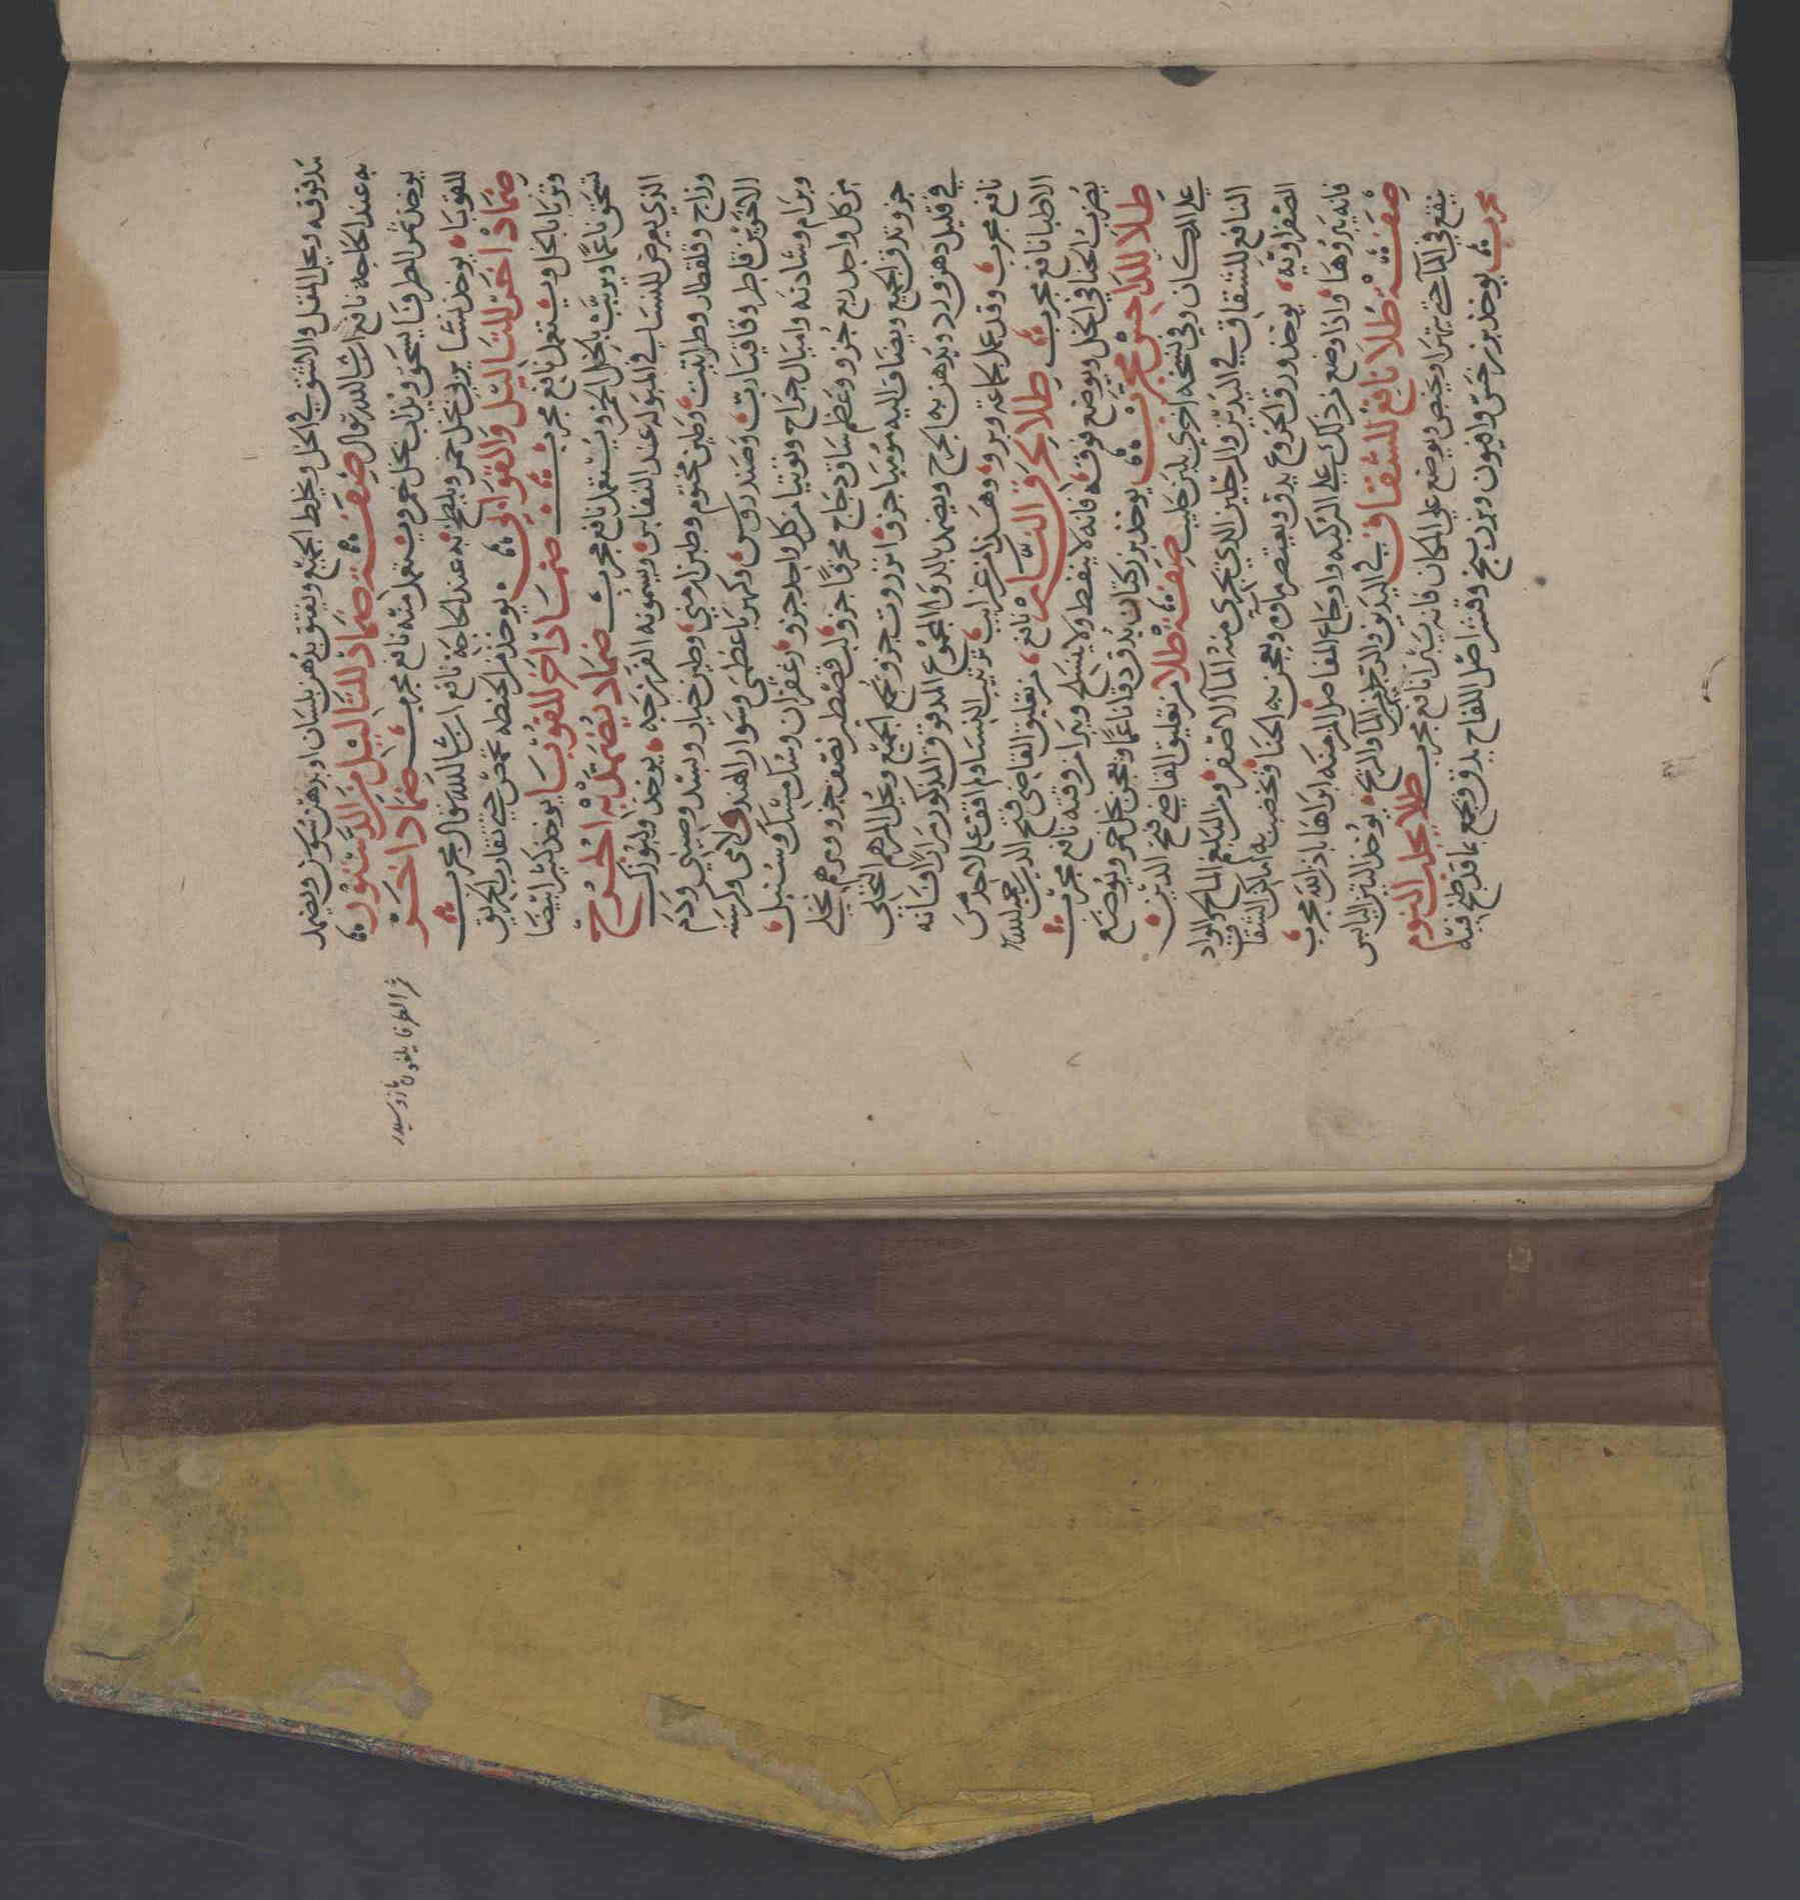 مدقوقه ويحل المقل والاشق في الخل ويخلط الجميع ويفتق بدهن بلسان او بدهن سوسن ويضمد
به عند الحاجه نافع ان شا الله تعالى صفة ضماد للثاليل من الدستور
يوخذ ثمر الطرفا يسحق ويذاب بخل خمر ويستعمل منه نافع مجرب ضماد اخر
للقوبا يوخذ نشا يربى بخل خمر ويلطخ به عند الحاجة نافع ان شا الله تعالى مجرب
ضماد اخر للثاليل والقوابي يوخذ من الحنطه تحمص حتى تقارب الحريق
وتربا بالخل ويستعمل نافع مجرب ضماد اخر للقوبا يوخذ كثيرا بيضا
تسحق ناعما ويربب بالخل الخمر ويستعمل نافع مجرب ضماد يضمد به الخرج
الذي يعرض للنسا في المبوله عند النفاس ويسمونه الفرزجه يوخذ
وزاج وقلقطار وطراثيث وطين مختوم وطين ارمني وطين خيار وبسد وصيني ودم
الاخوين قاطر وقاقيا رب وصندروس وكهربا عظمى وسوار الهند
وبرام وشادنه واميال جراح وتوتيا من كل واحد جزو زعفران وسك مسك وسنبل
من كل واحد ربع جزو وعظم ساق دجاج محرقا جزو لب قصطبر نصف جزو ومرهم نخلي
جزو تدق الجميع ويضاف اليه موميا جزو انزروت جزو تجمع الجميع ويحل المرهم النخلي
في قليل دهن ورد ويدهن به الجرح ويضمد بالدوا المجموع المدقوق المذكور مرارا فانه
نافع مجرب وقد عمل لجماعة وبرو وهذا من غرايب ترتيب النساء م اقف على لاحد من
الاطبا نافع مجرب طلا لحرق النار نافع من تعليق القاضي فتح الدين رحمه الله
يضرب الحنا في الخل ويوضع فوقه فانه لا ينفط ولا ينسلخ ويبرا من وقته نافع مجرب
طلا للداحس مجرب يوخذ بزر كتان يدق دقا ناعما ويعجن بخل خمر ويوضع
على المكان وفي نسخه اخرى بلبن حليب صفة طلا من تعليق القاضي فتح الدين
النافع للشقاق في اليدين والرجلين الذي يجري منه الما الاصفر ومن البلغم المالح والمواد
الصفراويه يوخذ ورق الخروع يدق ويعتصر ماوه ويعجن به الحنا وتخضب به اماكن الشقاق
فانه يبروها واذا وضع ذلك على الركبه واوجاع المفاصل المزمنه ابراها باذن الله مجرب
صفة طلا نافع للشقاق في اليدين والرجلين من الما والريح يوخذ التين اليابس
ينقع في الما حتى يتهرا ويخبص ويوضع على المكان فانه يبرا نافع مجرب طلا يجلب النوم
مجرب يوخذ بزر خس وافيون وبزر بنج وقشر اصل اللفاح يدق ويجمع بما قد طبخ فيه
ثمر الطرفا يلغون